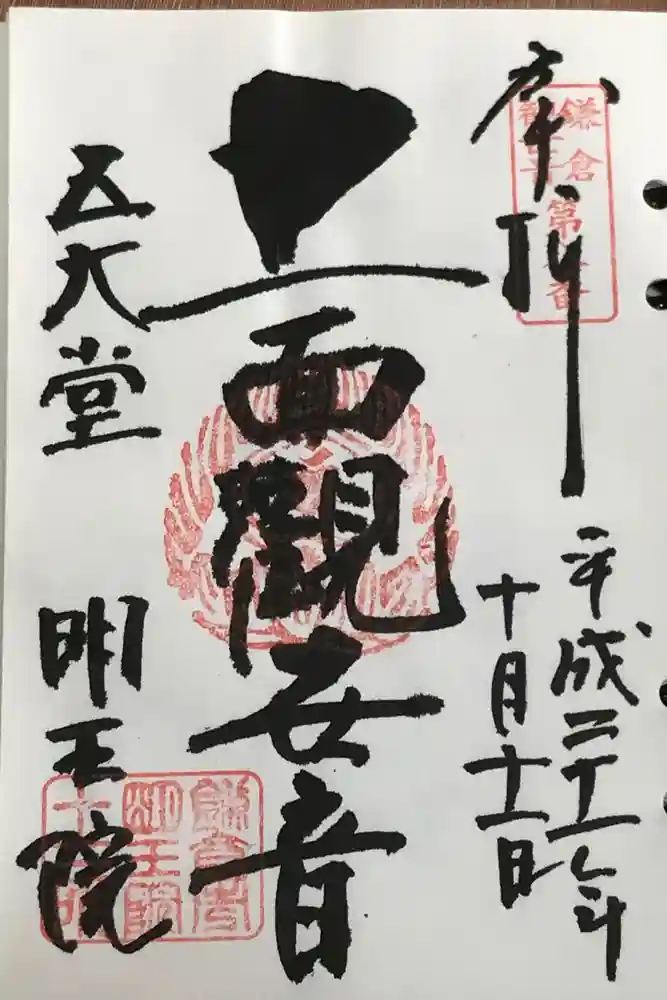 奉拝
鎌倉
観世音
第八番
平成二十一年
十月十一日
十一面觀世音
五大堂
明王院
鎌倉市
明王院
十二所